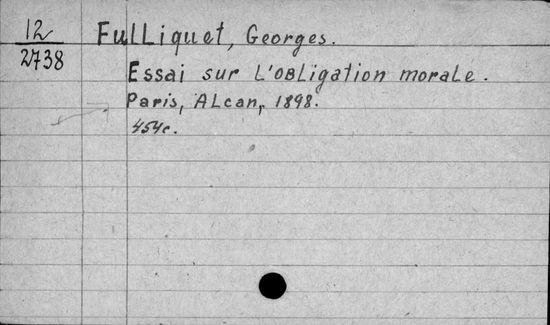 12
2738
Fulliquet, Georges.
Essai sur l'obligation morale.
Paris, Alcan, 1898.
454c.